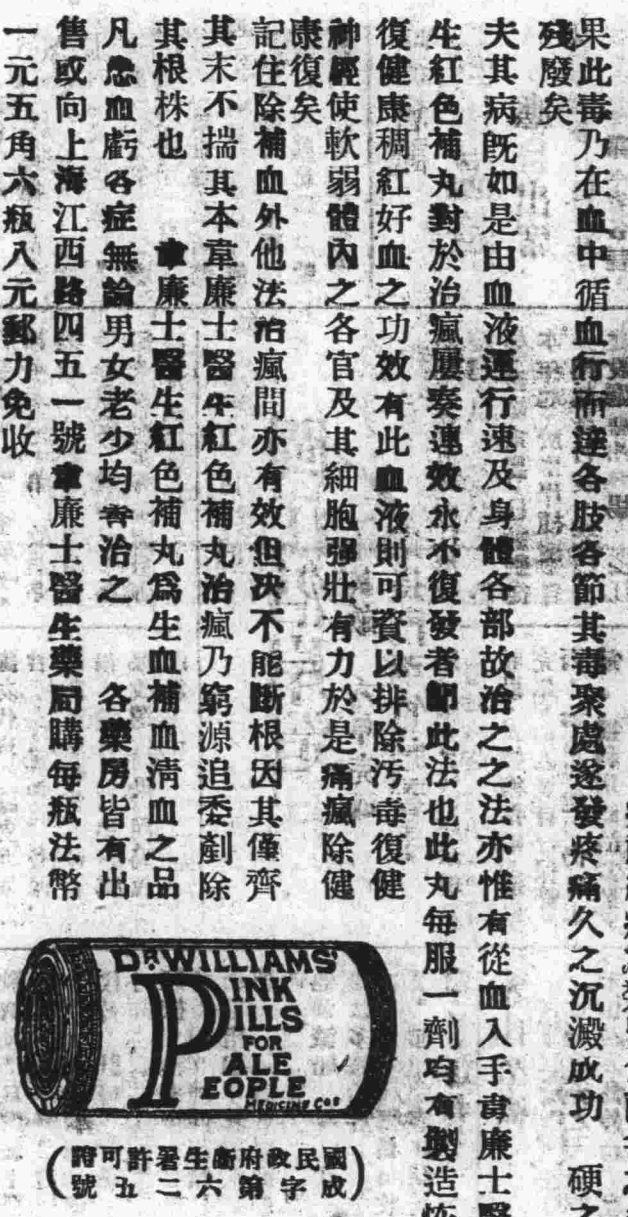 果此毒乃在血中循血行而達各肢各節其毒聚處遂發疼痛久之沉澱成功 硬
殘廢矣
夫其病既如是由血液運行速及身體各部故治之之法亦惟有從血入手韋廉士醫
生紅色補丸對於治瘋屢奏速效永不復發者卽此法也此丸每服一劑均有製造
復健康稠紅好血之功效有此血液則可資以排除汚毒復健
神經使軟弱體內之各官及其細胞強壯有力於是痛瘋除健
康復矣
記住除補血外他法治瘋間亦有效但決不能斷根因其僅齊
其末不揣其本韋廉士醫生紅色補丸治瘋乃窮源追委剷除
其根株也 韋廉士醫生紅色補丸爲生血補血淸血之品
凡患血虧各症無論男女老少均善治之 各藥房皆有出
售或向上海江西路四五一號韋廉士醫生藥局購每瓶法幣
一元五角六瓶八元郵力免收
DR WILLIAMS'
PINK
PILLS
FOR
PALE
PEOPLE
MEDICINE Co
國民政府衞生署許可證
成字第六二五號